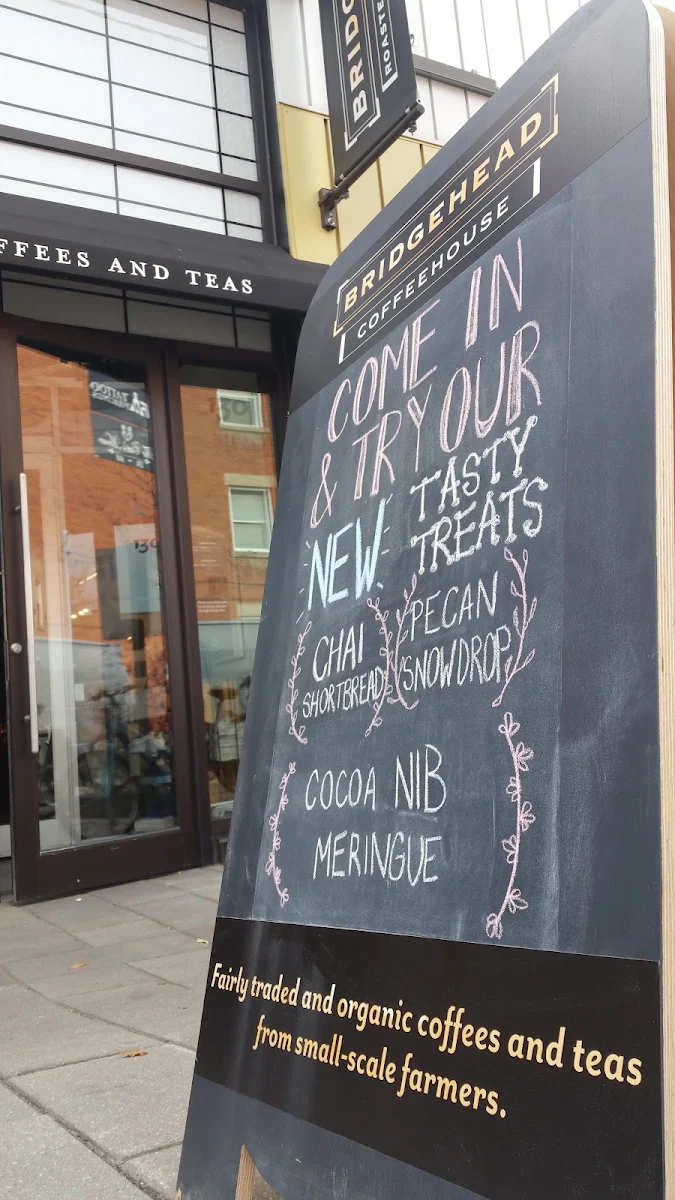 BRIDG
ROASTE
FFEES AND TEAS
BRIDGEHEAD
COFFEEHOUSE
COME IN
& TRY OUR
NEW TASTY
TREATS
CHAI
SHORTBREAD
PECAN
SNOWDROP
COCOA NIB
MERINGUE
Fairly traded and organic coffees and teas
from small-scale farmers.
TATTOO
130